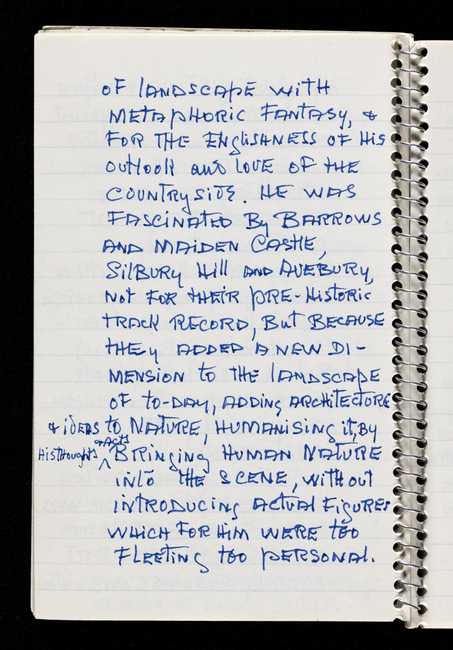 OF LANDSCAPE WITH
METAPHORIC FANTASY, &
FOR THE ENGLISHNESS OF HIS
OUTLOOK AND LOVE OF THE
COUNTRYSIDE. HE WAS
FASCINATED BY BARROWS
AND MAIDEN CASTLE,
SILBURY HILL AND AVEBURY,
NOT FOR THEIR PRE-HISTORIC
TRACK RECORD, BUT BECAUSE
THEY ADDED A NEW DI-
MENSION TO THE LANDSCAPE
OF TO-DAY, ADDING ARCHITECTURE
& IDEAS TO NATURE, HUMANISING IT, BY
HIS THOUGHTS & ACTS BRINGING HUMAN NATURE
INTO THE SCENE, WITHOUT
INTRODUCING ACTUAL FIGURES
WHICH FOR HIM WERE TOO
FLEETING TOO PERSONAL.